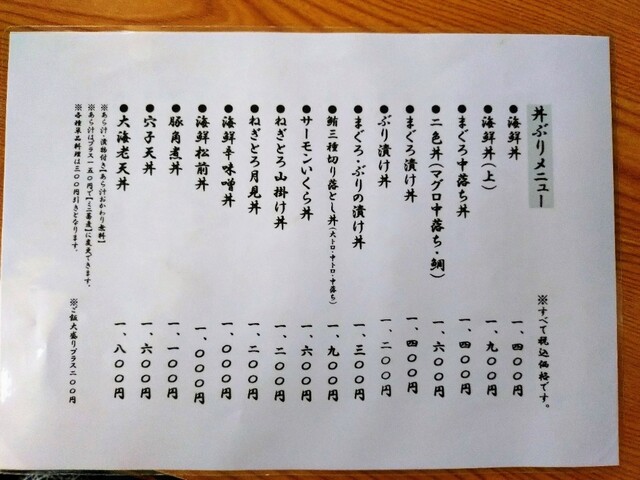 丼ぶりメニュー
※すべて税込価格です。
●海鮮丼 一、四〇〇円
●海鮮丼(上) 一、九〇〇円
●まぐろ中落ち丼 一、四〇〇円
●二色丼(マグロ中落ち・鯛) 一、六〇〇円
●まぐろ漬け丼 一、四〇〇円
●ぶり漬け丼 一、二〇〇円
●まぐろ・ぶりの漬け丼 一、三〇〇円
●鮪三種切り落とし丼(大トロ・中トロ・中落ち) 一、九〇〇円
●サーモンいくら丼 一、六〇〇円
●ねぎとろ山掛け丼 一、二〇〇円
●ねぎとろ月見丼 一、二〇〇円
●海鮮辛味噌丼 一、〇〇〇円
●海鮮松前丼 一、〇〇〇円
●豚角煮丼 一、一〇〇円
●穴子天丼 一、六〇〇円
●大海老天丼 一、八〇〇円
※あら汁・漬物付き【あら汁おかわり無料】
※あら汁はプラス一五〇円で【ミニ蕎麦】に変更できます。
※各種単品料理は三〇〇円引きとなります。
※ご飯大盛りプラス二〇〇円